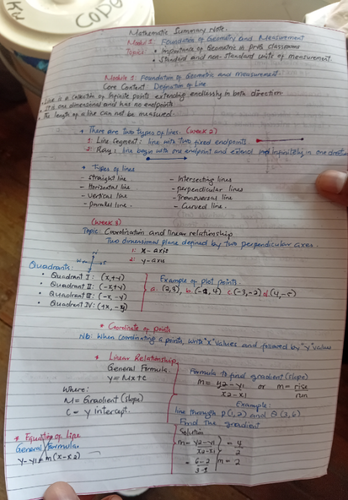 Mathematic Summary Note.
Modul 1: Foundation of Geometry and Measurement
Topic: • Importance of Geometric in Prob classroom
• Standard and non-Standard Units of measurement.
Module 1 Foundation of Geometric and measurement
Core Content: Definition of Line
• Line is a collection of infinite points extending endlessly in both direction
• It is one dimensional and has no endpoints
• The length of a line can not be measured
• There are two types of line: (week 2)
1. Line Segment: line with two fixed endpoints
2. Rays: line begin with one endpoint and extend indefinitely in one direction
• Types of lines
- Straight line
- Horizontal line
- Vertical line
- parallel line.
- Intersecting lines
- perpendicular lines
- Transversal line
- Curved line.
(week 3)
Topic: Coordination and linear relationship
Two dimensional plane defined by two perpendicular axes.
1: x-axis
2: y-axis
Quadrants
• Quadrant I: (x,+y)
• Quadrant II: (-x,+y)
• Quadrant III: (-x,-y)
• Quadrant IV: (+x,-y)
Example of plot points.
a. (2,3), b. (-2,4) c (-3,-2) d (4,-5)
• Coordinate of points
NB: When coordinating a points, write "x" values and followed by "y" values
• Linear Relationship
General Formula:
y=Mx+c
Where:
M= Gradient (slope)
C = y intercept.
Formula to find gradient (slope)
m= y2-y1 or m= rise
x2-x1 run
Example:
line through P(1,2) and Q(3,6).
Find the gradient
Solution
m= y2-y1 = 4
x2-x1 2
= 6-2 m = 2
3-1
• Equation of Line
General Formula:
y-y1 = m(x-x2)